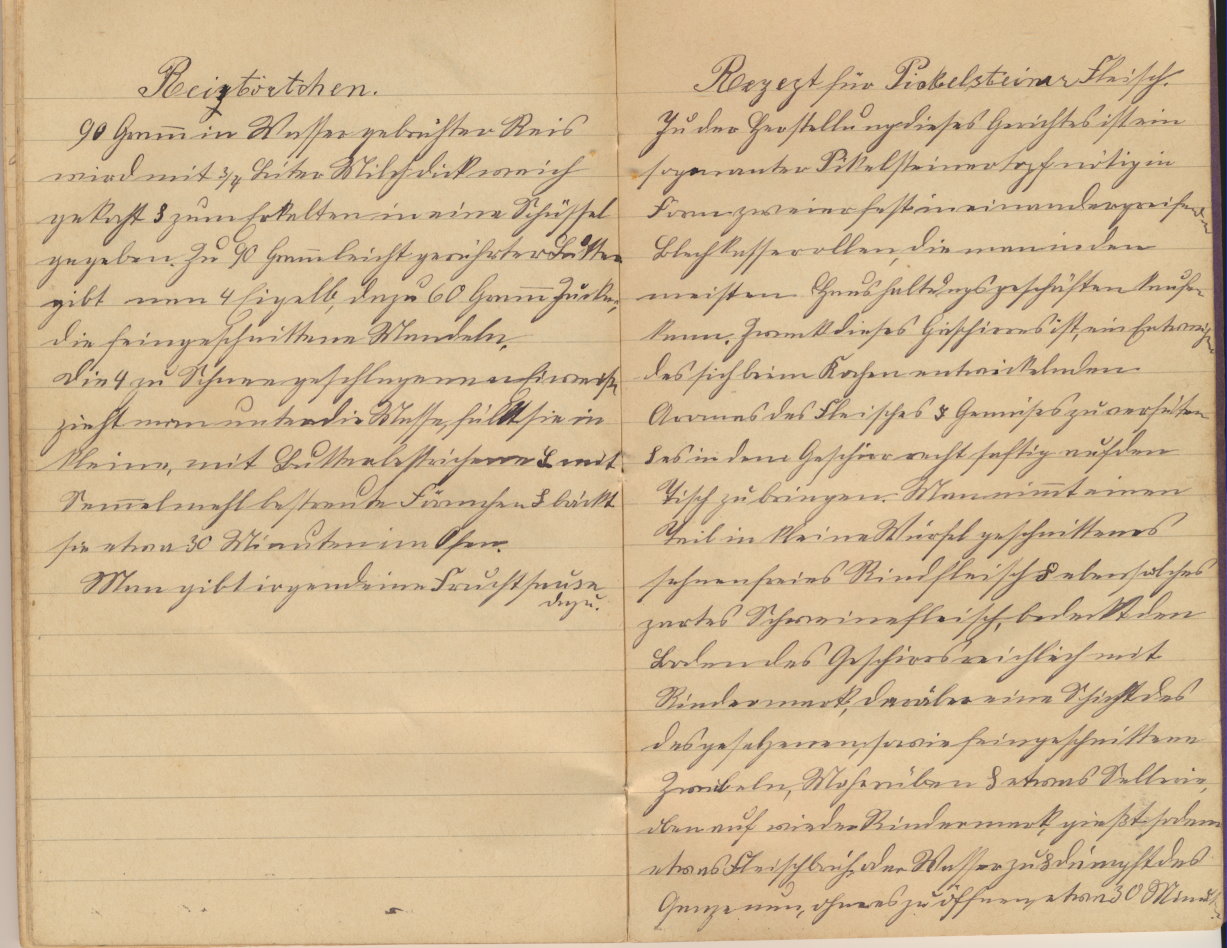 Reistörtchen.
90 Gramm in Wasser gebrühter Reis
wird mit 3/4 Liter Milch dick weich
gekocht & zum Erkalten in eine Schüssel
gegeben. Zu 90 Gramm leicht gerührter Butter
gibt man 4 Eigelb, dazu 60 Gramm Zucker,
die feingeschnittene Mandeln.
Die 4 zu Schnee geschlagenen Eiweiß
zieht man unter die Masse, füllt sie in
kleine, mit Butter bestrichene & mit
Semmelmehl bestreute Förmchen & bäckt
sie etwa 30 Minuten im Ofen.
Man gibt irgendeine Fruchtsauce
dazu.
Rezept für Pickelsteiner Fleisch.
Zu der Herstellung dieses Gerichtes ist ein
sogenannter Pikelsteinertopf nötig in
Form zweier fest ineinandergreifenden
Blechkasserollen, die man in den
meisten Haushaltungsgeschäften kaufen
kann. Zweck dieses Geschirres ist, ein Entweichen
des sich beim Kochen entwickelnden
Aromas des Fleisches & Gemüses zu verhüten
& es in dem Geschirr recht saftig auf den
Tisch zu bringen. Man nimmt einen
Teil in kleine Würfel geschnittenes
sehnenfreies Rindfleisch & ebensolches
zartes Schweinefleisch, bedeckt den
Boden des Geschirrs reichlich mit
Rindermark, darüber eine Schicht des
des gesalzenen, sowie feingeschnittene
Zwiebeln, Mohrrüben & etwas Sellerie,
oben auf wieder Rindermark, gießt sodann
etwas Fleischbrüh oder Wasser zu & dämpft das
Ganze nun, ohne es zu öffnen, etwa 30 Minut